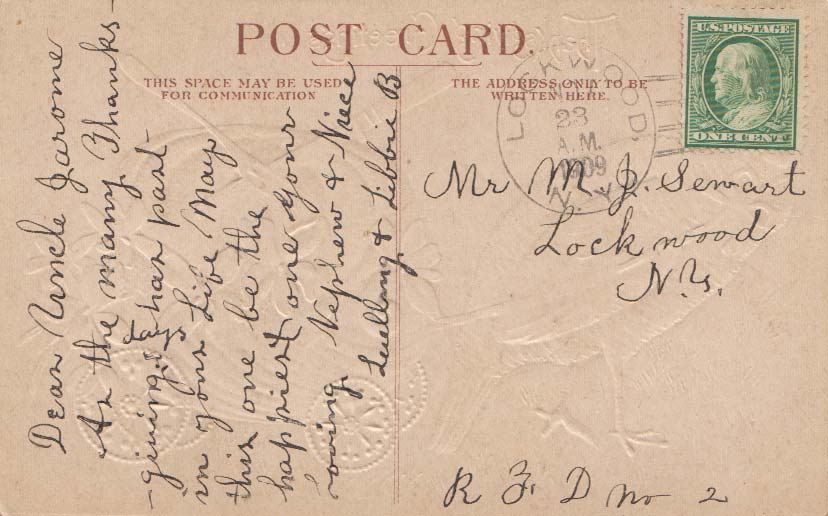 POST CARD.
THIS SPACE MAY BE USED
FOR COMMUNICATION
THE ADDRESS ONLY TO BE
WRITTEN HERE.
U.S. POSTAGE
ONE CENT
LOCKWOOD,
23
A.M.
1909
N.Y.
Dear Uncle Jarome
As the many Thanks-
-giving days has past
in your Life May
this one be the
happiest one your
loving Nephew & Niece
Luellny & Libbie B
Mr M. J. Sewart
Lockwood
N.Y.
R. F. D no 2